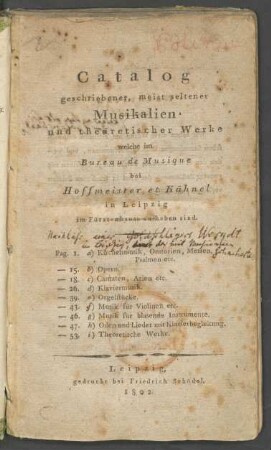 Catalog
geschriebener, meist seltener
Musikalien
und theoretischer Werke
welche im
Bureau de Musique
bei
Hoffmeister et Kühnel
in Leipzig
im Fürstenhause zu haben sind.
Pag. 1. a) Kirchenmusik, Oratorien, Messen,
Psalmen etc.
— 15. b) Opern.
— 18. c) Cantaten, Arien etc.
— 26. d) Klaviermusik.
— 39. e) Orgelstücke.
— 43. f) Musik für Violinen etc.
— 46. g) Musik für blasende Instrumente.
— 47. h) Oden und Lieder mit Klavierbegleitung.
— 53. i) Theoretische Werke.
Leipzig,
gedruckt bei Friedrich Schödel.
1802.